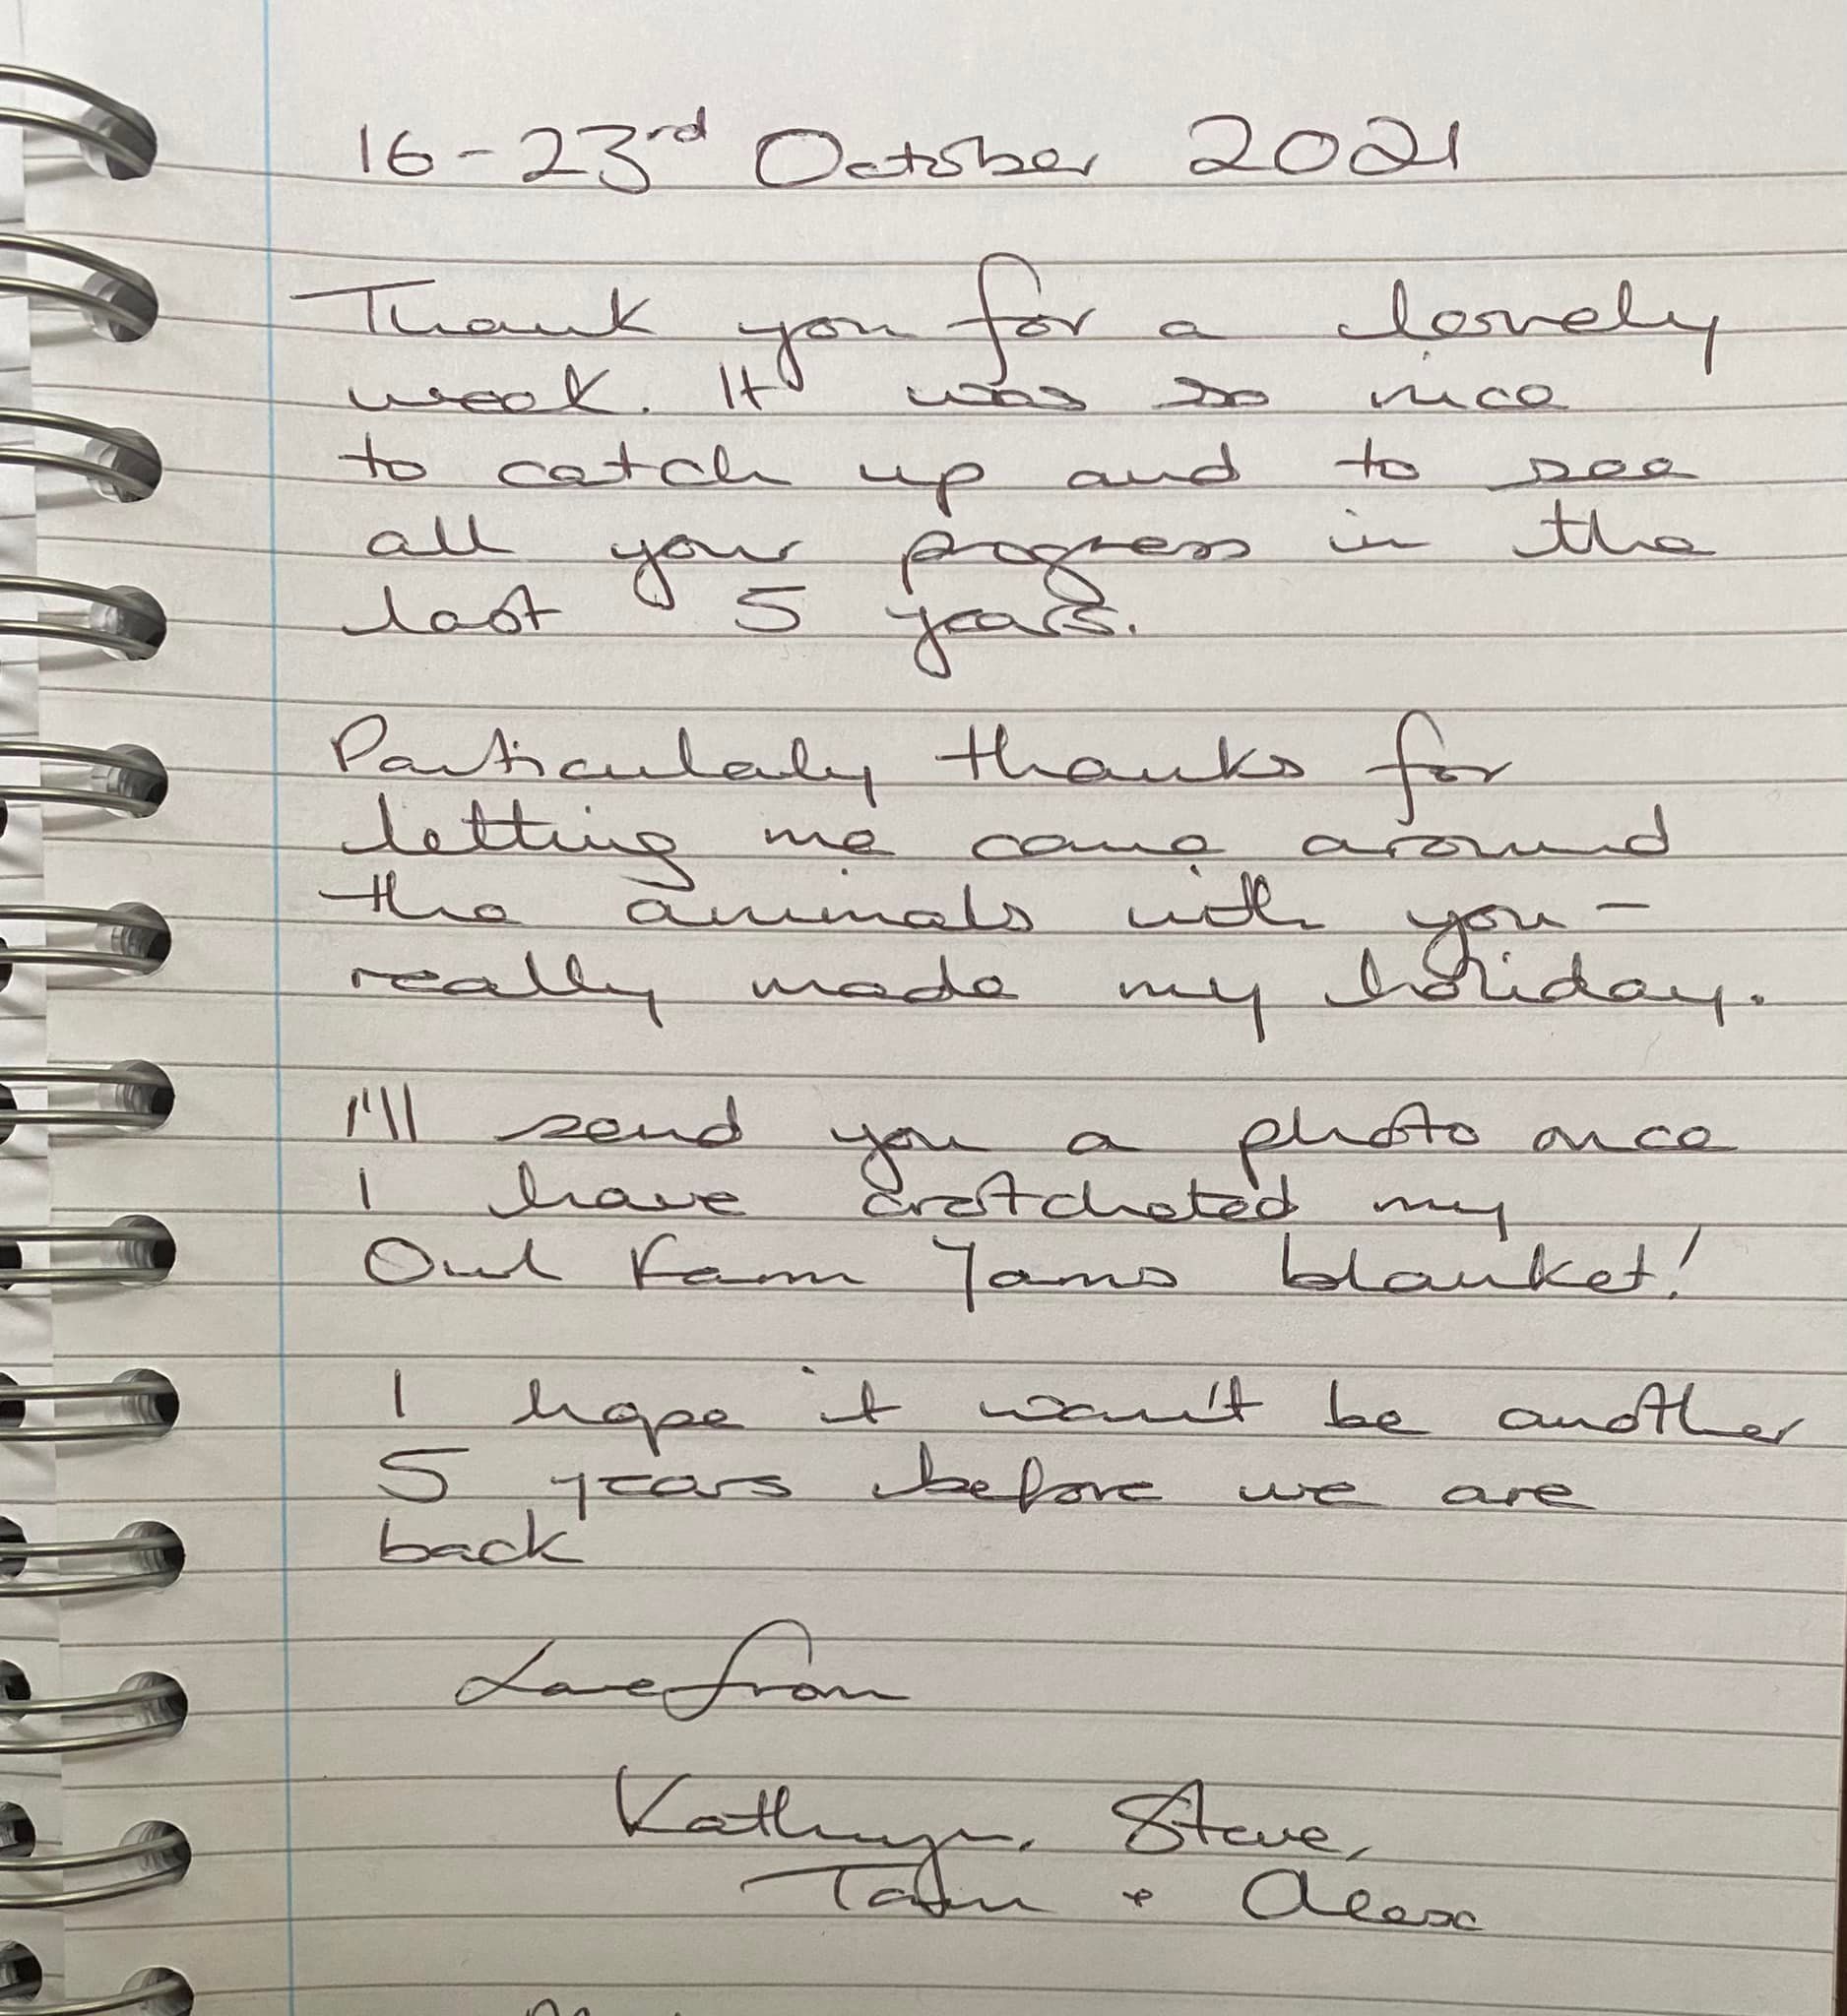 16-23rd October 2021
Thank you for a lovely
week. It was so nice
to catch up and to see
all your progress in the
last 5 years.
Particulaly thanks for
letting me come around
the animals with you -
really made my holiday.
I'll send you a photo once
I have crotcheted my
Owl Farm Yarns blanket!
I hope it won't be another
5 years before we are
back
Love from
Kathryn, Steve,
+ Alex